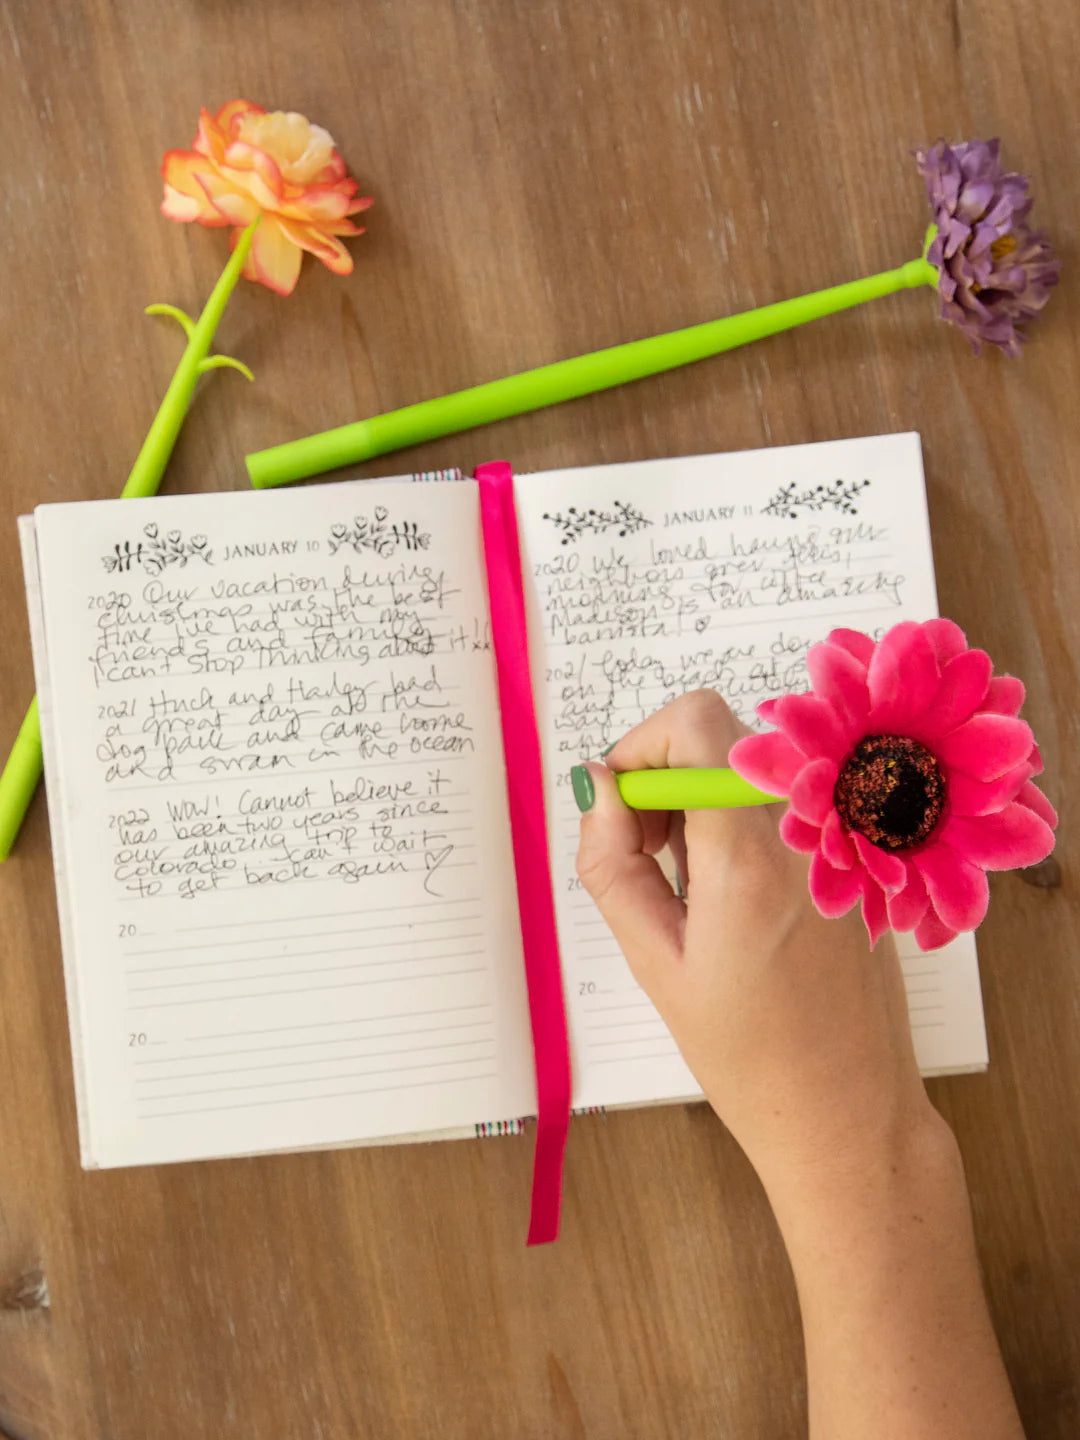 JANUARY 10
2020 Our vacation during
christmas was the best
time I've had with my
friends and family!
I can't stop thinking about it!! xx
2021 Huck and Harley had
a great day at the
dog park and came home
and swam in the ocean
2022 WOW! Cannot believe it
has been two years since
our amazing trip to
colorado. can't wait
to get back again
20
20
JANUARY 11
2020 We loved having our
neighbors over this
morning for coffee
Madison is an amazing
barista!
2021 Today we are
on the beach at
and I absolutely
wait.
and
20
20
20